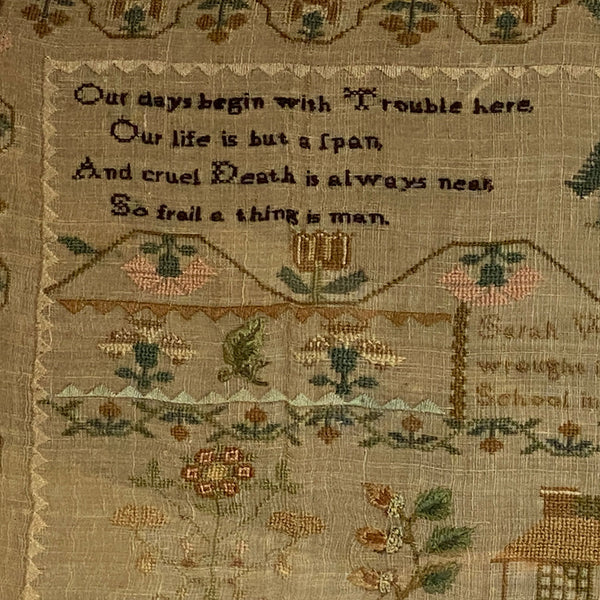 Our days begin with Trouble here,
Our life is but a ſpan,
And cruel Death is always near,
So frail a thing is man.
Sarah
wrought
School in